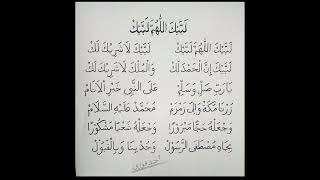 لَبَّيْكَ اللّٰهُمَّ لَبَّيْكْ
لَبَّيْكَ اللّٰهُمَّ لَبَّيْكْ لَبَّيْكَ لَا شَرِيْكَ لَكْ
لَبَّيْكَ إِنَّ الْحَمْدَ لَكْ وَالْمُلْكَ لَا شَرِيْكَ لَكْ
يَا رَبِّ صَلِّ وَسَلِّمْ عَلَى النَّبِي خَيْرِ الْأَنَامْ
زُرْنَا مَكَّةْ وَإِلَى زَمْزَمْ مُحَمَّدْ عَلَيْهِ السَّلَامْ
وَجْعَلْهُ حَجًّا مَبْرُوْرًا وَجْعَلْهُ سَعْيًا مَشْكُوْرًا
بِجَاهِ مُصْطَفَى الرَّسُوْلْ وَبِالْقَبُوْلْ